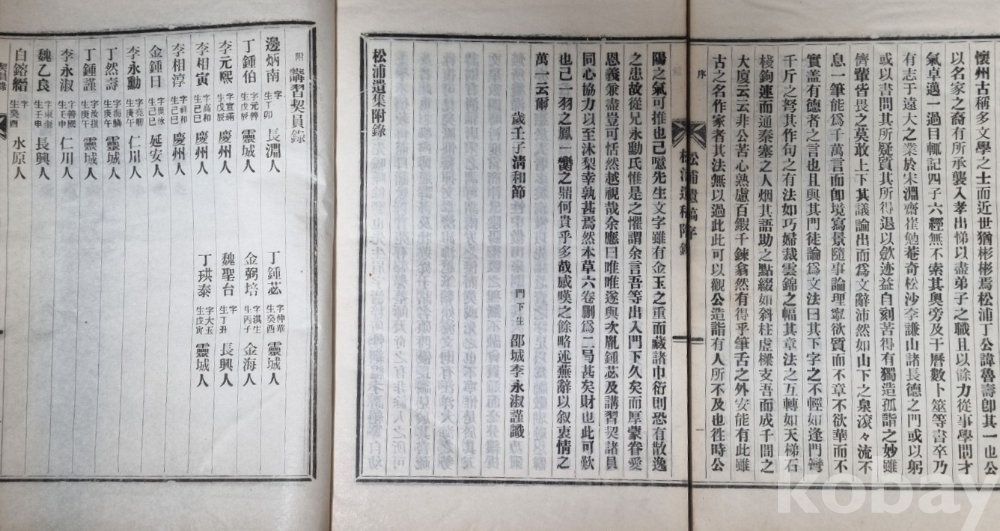 懷州古稱多文學之士而近世猶彬彬焉松浦丁公諱魯壽卽其一也公
以名家之裔有所承襲入孝出悌以盡弟子之職且以餘力從事學問才
氣卓邁一過目輒記四子六經無不索其奧旁及于曆數卜筮等書卒乃
有志于遠大之業於朱淵齋崔勉菴奇松沙李謙山諸長德之門或以躬
或以書問其所疑質其所得退以斂迹益自刻苦得有獨造孤詣之妙雖
儕輩皆畏之莫敢上下其議論出而爲文辭沛然如山下之泉滾々流不
息一筆能爲千萬言而卽境寫景隨事論理寧欲質而不章不欲華而不
實盖有德者之言也且與其門徒論爲文法曰其下字之不輕如逢門彎
千斤之弩其作句之有法如巧婦裁雲錦之幅其章法之互轉如天梯石
棧鉤連而通秦塞之人烟其語助之點綴如斜柱虛樑支吾而成千間之
大廈云云非公苦心熟慮百鍛千鍊翕然有得乎筆舌之外安能有此雖
古之名作家者其法無以過此此可以觀公造詣有人所不及也徃時公
序
一
松浦遺稿附錄
陽之氣可推也已噫先生文字雖有金玉之重而藏諸巾衍則恐有散逸
之患故從兄永勳氏惟是之懼謂余言吾等出入門下久矣而厚蒙眷愛
恩義兼盡豈可恬然越視哉余應曰唯唯遂與次胤鍾苾及講習契諸員
同心協力以至沐梨幸孰甚焉然本草六卷刪爲二号甚矣財也此可歎
也已一羽之鳳一臠之鼎何貴乎多哉感嘆之餘略述蕪辭以叙衷情之
萬一云爾
歲壬子淸和節
門下生 邵城李永淑謹識
松浦遺集附錄
附 講習契員錄
邊炳南 字 生丁卯 長淵人
丁鍾伯 字元善 生戊辰 靈城人
李元熙 字實 生戊辰 慶州人
李相寅 字高和 生己巳 慶州人
李相淳 字祥和 生己巳 慶州人
金鍾目 字 生己巳 延安人
李永勳 字 生庚午 仁川人
丁然壽 字 生庚午 靈城人
丁鍾謹 字 生庚午 靈城人
李永淑 字善國 生庚午 仁川人
魏乙良 字 生壬申 長興人
白鎔 字 生癸酉 水原人
丁鍾苾 字仲華 生癸酉 靈城人
金弼培 字淇 生丙子 金海人
魏聖台 字 生丁丑 長興人
丁珙泰 字大五 生戊寅 靈城人
kobay